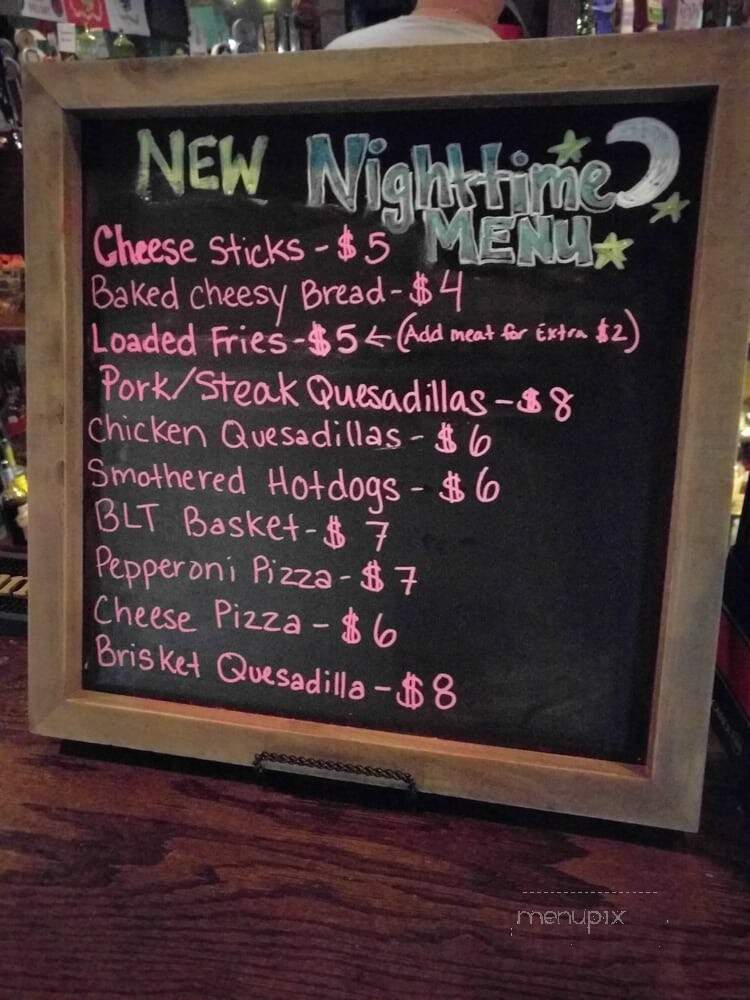 NEW Nighttime
MENU
Cheese Sticks - $5
Baked Cheesy Bread - $4
Loaded Fries - $5 ← (Add meat for Extra $2)
Pork/Steak Quesadillas - $8
Chicken Quesadillas - $6
Smothered Hotdogs - $6
BLT Basket - $7
Pepperoni Pizza - $7
Cheese Pizza - $6
Brisket Quesadilla - $8
menupix